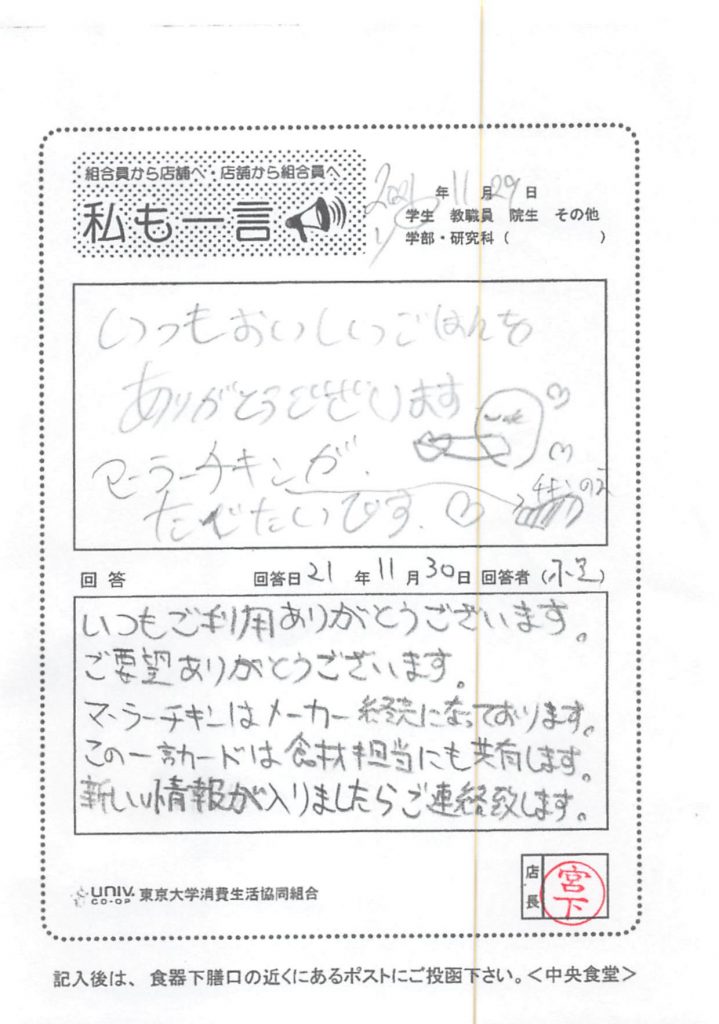 組合員から店舗へ・店舗から組合員へ
私も一言
2021年11月29日
学生 教職員 院生 その他
学部・研究科（ ）
いつもおいしいごはんを
ありがとうございます
マーラーチキンが、
たべたいです。
回答 回答日21年11月30日 回答者（ ）
いつもご利用ありがとうございます。
ご要望ありがとうございます。
マーラーチキンはメーカー終売になっております。
この一言カードは食材担当にも共有します。
新しい情報が入りましたらご連絡致します。
UNIV. CO-OP 東京大学消費生活協同組合
店長 宮下
記入後は、食器下膳口の近くにあるポストにご投函下さい。＜中央食堂＞